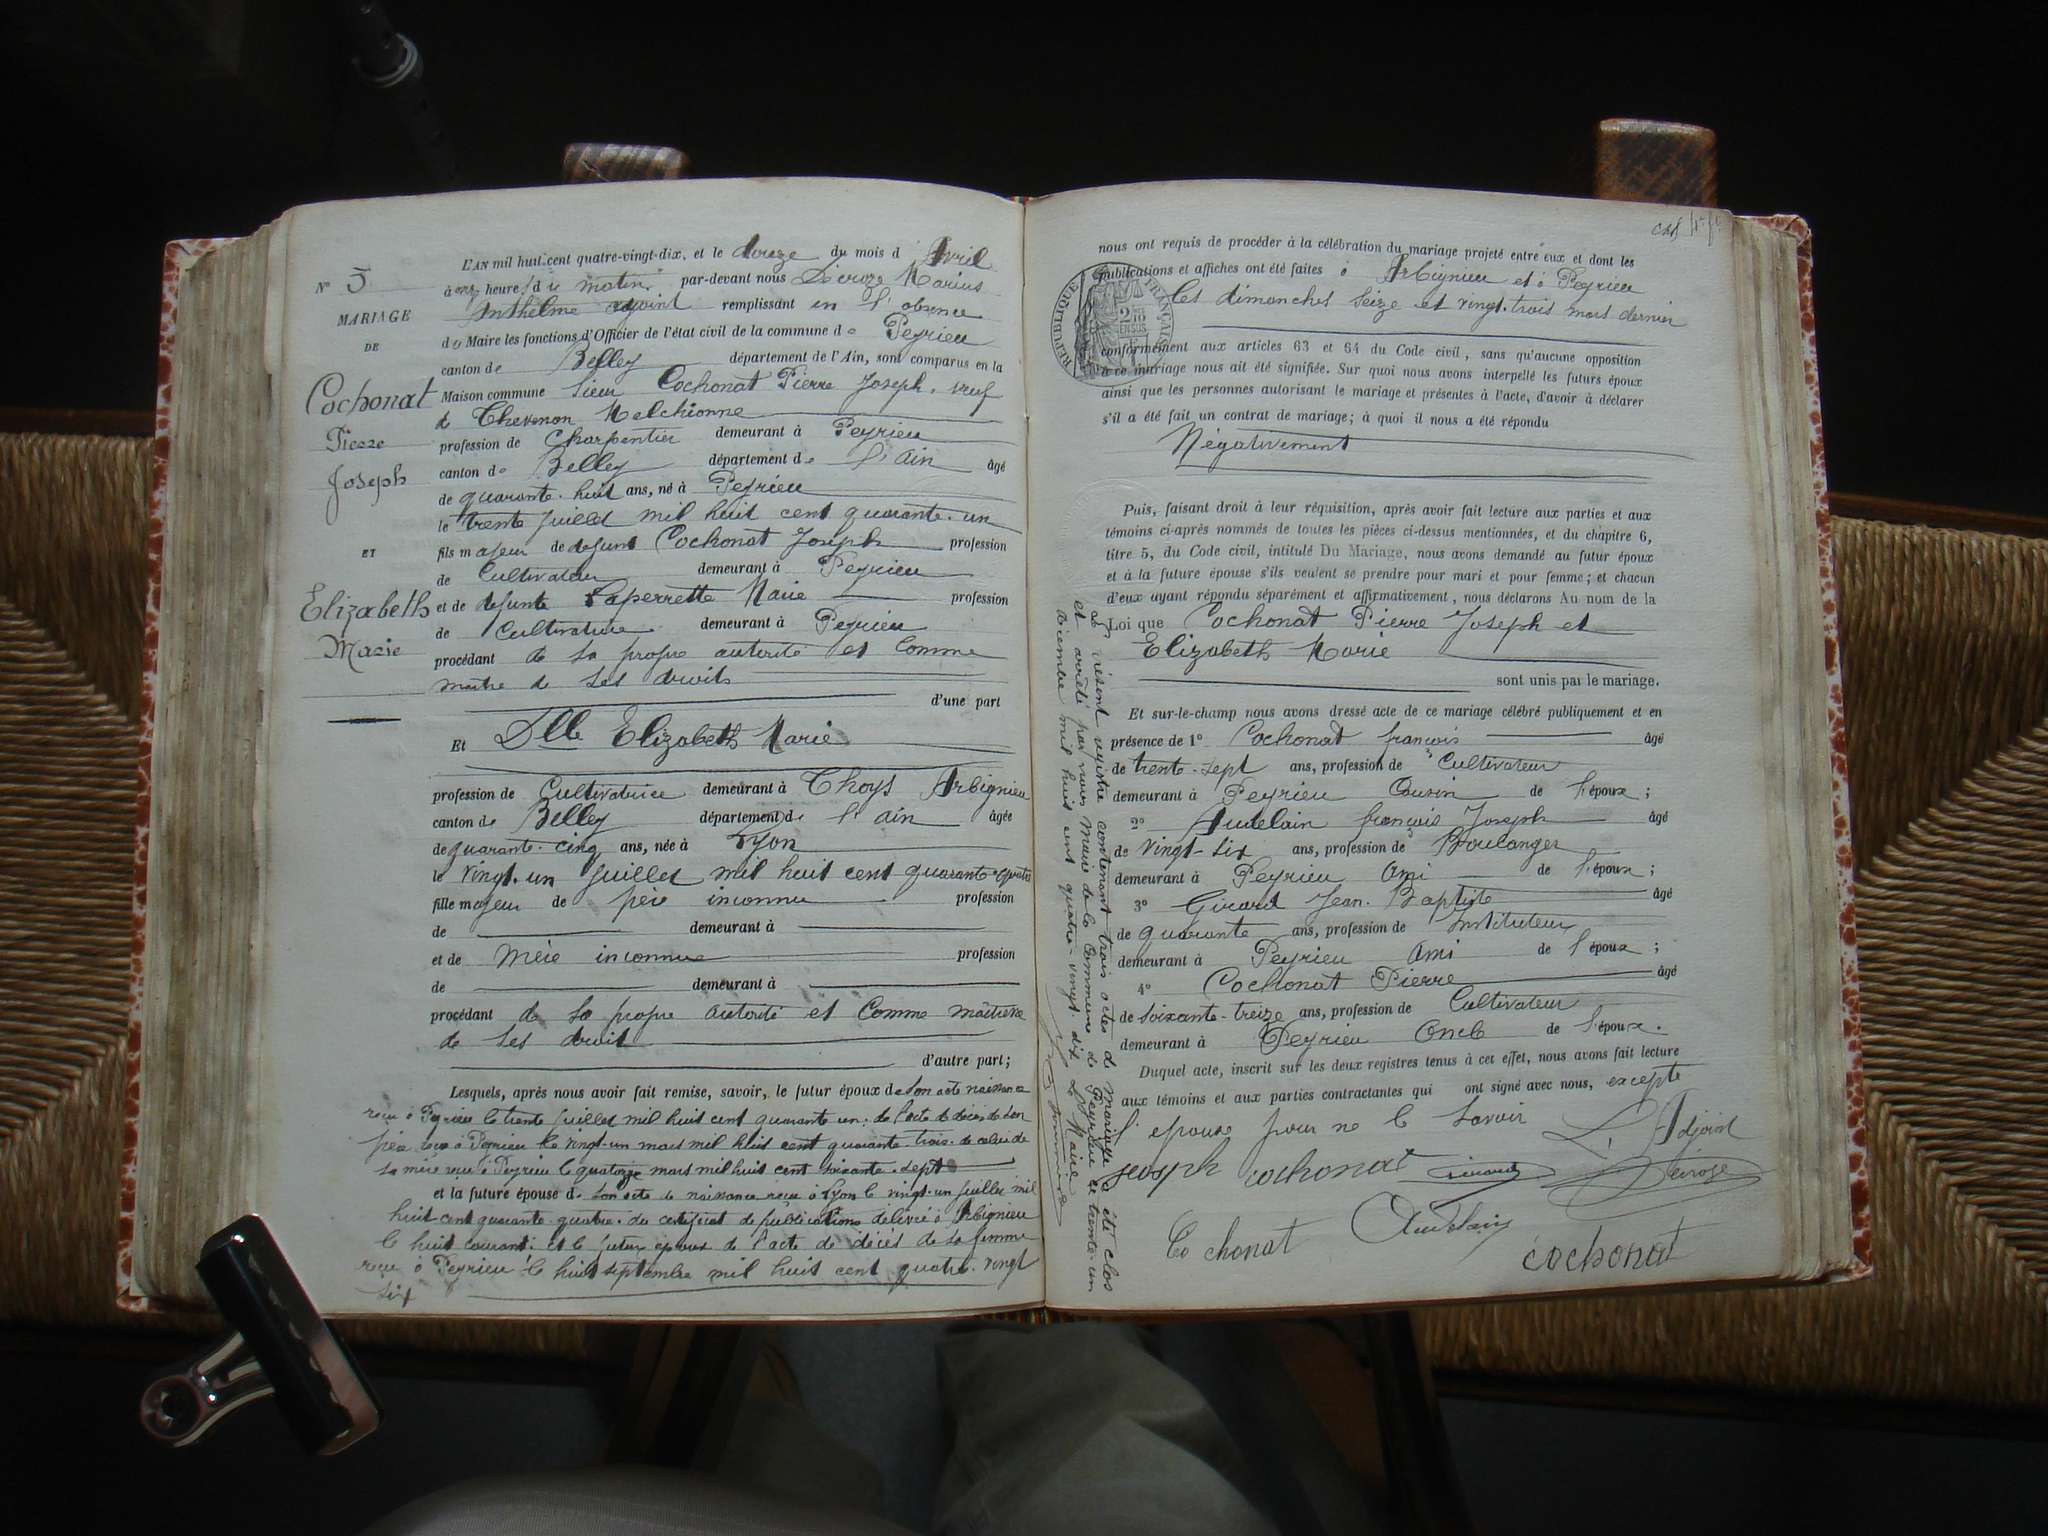 N° 3
MARIAGE
DE
Cochonat
Pierre
Joseph
ET
Elizabeth
Marie
L'AN mil huit cent quatre-vingt-dix, et le douze du mois d'Avril
à onze heures du matin par-devant nous Décroze Marius
Anthelme adjoint remplissant en l'absence
du Maire les fonctions d'Officier de l'état civil de la commune de Peyrieu
canton de Belley département de l'Ain, sont comparus en la
Maison commune Sieur Cochonat Pierre Joseph, veuf
de Thevenon Melchionne
profession de Charpentier demeurant à Peyrieu
canton de Belley département de l'ain âgé
de quarante-huit ans, né à Peyrieu
le trente juillet mil huit cent quarante-un
fils majeur de defunt Cochonat Joseph profession
de Cultivateur demeurant à Peyrieu
et de defunte Laperrette Marie profession
de Cultivatrice demeurant à Peyrieu
procédant de sa propre autorité et Comme
maître de ses droits
d'une part
Et Dlle Elizabeth Marie
profession de Cultivatrice demeurant à Thoys Arbignieu
canton de Belley département de l'ain âgée
de quarante-cinq ans, née à Lyon
le vingt-un juillet mil huit cent quarante-quatre
fille majeur de père inconnu profession
de demeurant à
et de Mère inconnue profession
de demeurant à
procédant de sa propre autorité et Comme maîtresse
de ses droit
d'autre part;
Lesquels, après nous avoir fait remise, savoir, le futur époux de son acte naissance
reçu à Peyrieu le trente juillet mil huit cent quarante un: de l'acte de décès de son
père reçu à Peyrieu le vingt-un mars mil huit cent quarante-trois de celui de
sa mère reçu à Peyrieu le quatorze mars mil huit cent soixante-sept
et la future épouse de son acte de naissance reçu à Lyon le vingt-un juillet mil
huit cent quarante-quatre. du certificat de publications délivré à Arbignieu
le huit courant: et le futur époux de l'acte de décès de sa femme
reçu à Peyrieu le huit septembre mil huit cent quatre-vingt
six
nous ont requis de procéder à la célébration du mariage projeté entre eux et dont les
publications et affiches ont été faites à Arbignieu et à Peyrieu
les dimanches seize et vingt-trois mars dernier
RÉPUBLIQUE FRANÇAISE
conformément aux articles 63 et 64 du Code civil, sans qu'aucune opposition
à ce mariage nous ait été signifiée. Sur quoi nous avons interpellé les futurs époux
ainsi que les personnes autorisant le mariage et présentes à l'acte, d'avoir à déclarer
s'il a été fait un contrat de mariage; à quoi il nous a été répondu
Négativement
Puis, faisant droit à leur réquisition, après avoir fait lecture aux parties et aux
témoins ci-après nommés de toutes les pièces ci-dessus mentionnées, et du chapitre 6,
titre 5, du Code civil, intitulé Du Mariage, nous avons demandé au futur époux
et à la future épouse s'ils veulent se prendre pour mari et pour femme; et chacun
d'eux ayant répondu séparément et affirmativement, nous déclarons Au nom de la
Loi que Cochonat Pierre Joseph et
Elizabeth Marie
sont unis par le mariage.
Et sur-le-champ nous avons dressé acte de ce mariage célébré publiquement et en
présence de 1° Cochonat françois âgé
de trente-sept ans, profession de Cultivateur
demeurant à Peyrieu Cousin de l'époux;
2° Audelain françois Joseph âgé
de vingt-six ans, profession de Boulanger
demeurant à Peyrieu Ami de l'époux;
3° Girard Jean-Baptiste âgé
de quarante ans, profession de Instituteur
demeurant à Peyrieu Ami de l'époux;
4° Cochonat Pierre âgé
de soixante-treize ans, profession de Cultivateur
demeurant à Peyrieu Oncle de l'époux.
Duquel acte, inscrit sur les deux registres tenus à cet effet, nous avons fait lecture
aux témoins et aux parties contractantes qui ont signé avec nous, excepté
l'épouse pour ne le savoir
L'Adjoint
joseph cochonat Girard Décroze
Cochonat Audelain cochonat
Le présent registre contenant trois actes de Mariage a été clos
et arrêté par nous Maire de la Commune de Peyrieu le trente-un
Décembre mil huit cent quatre-vingt-dix Le Maire